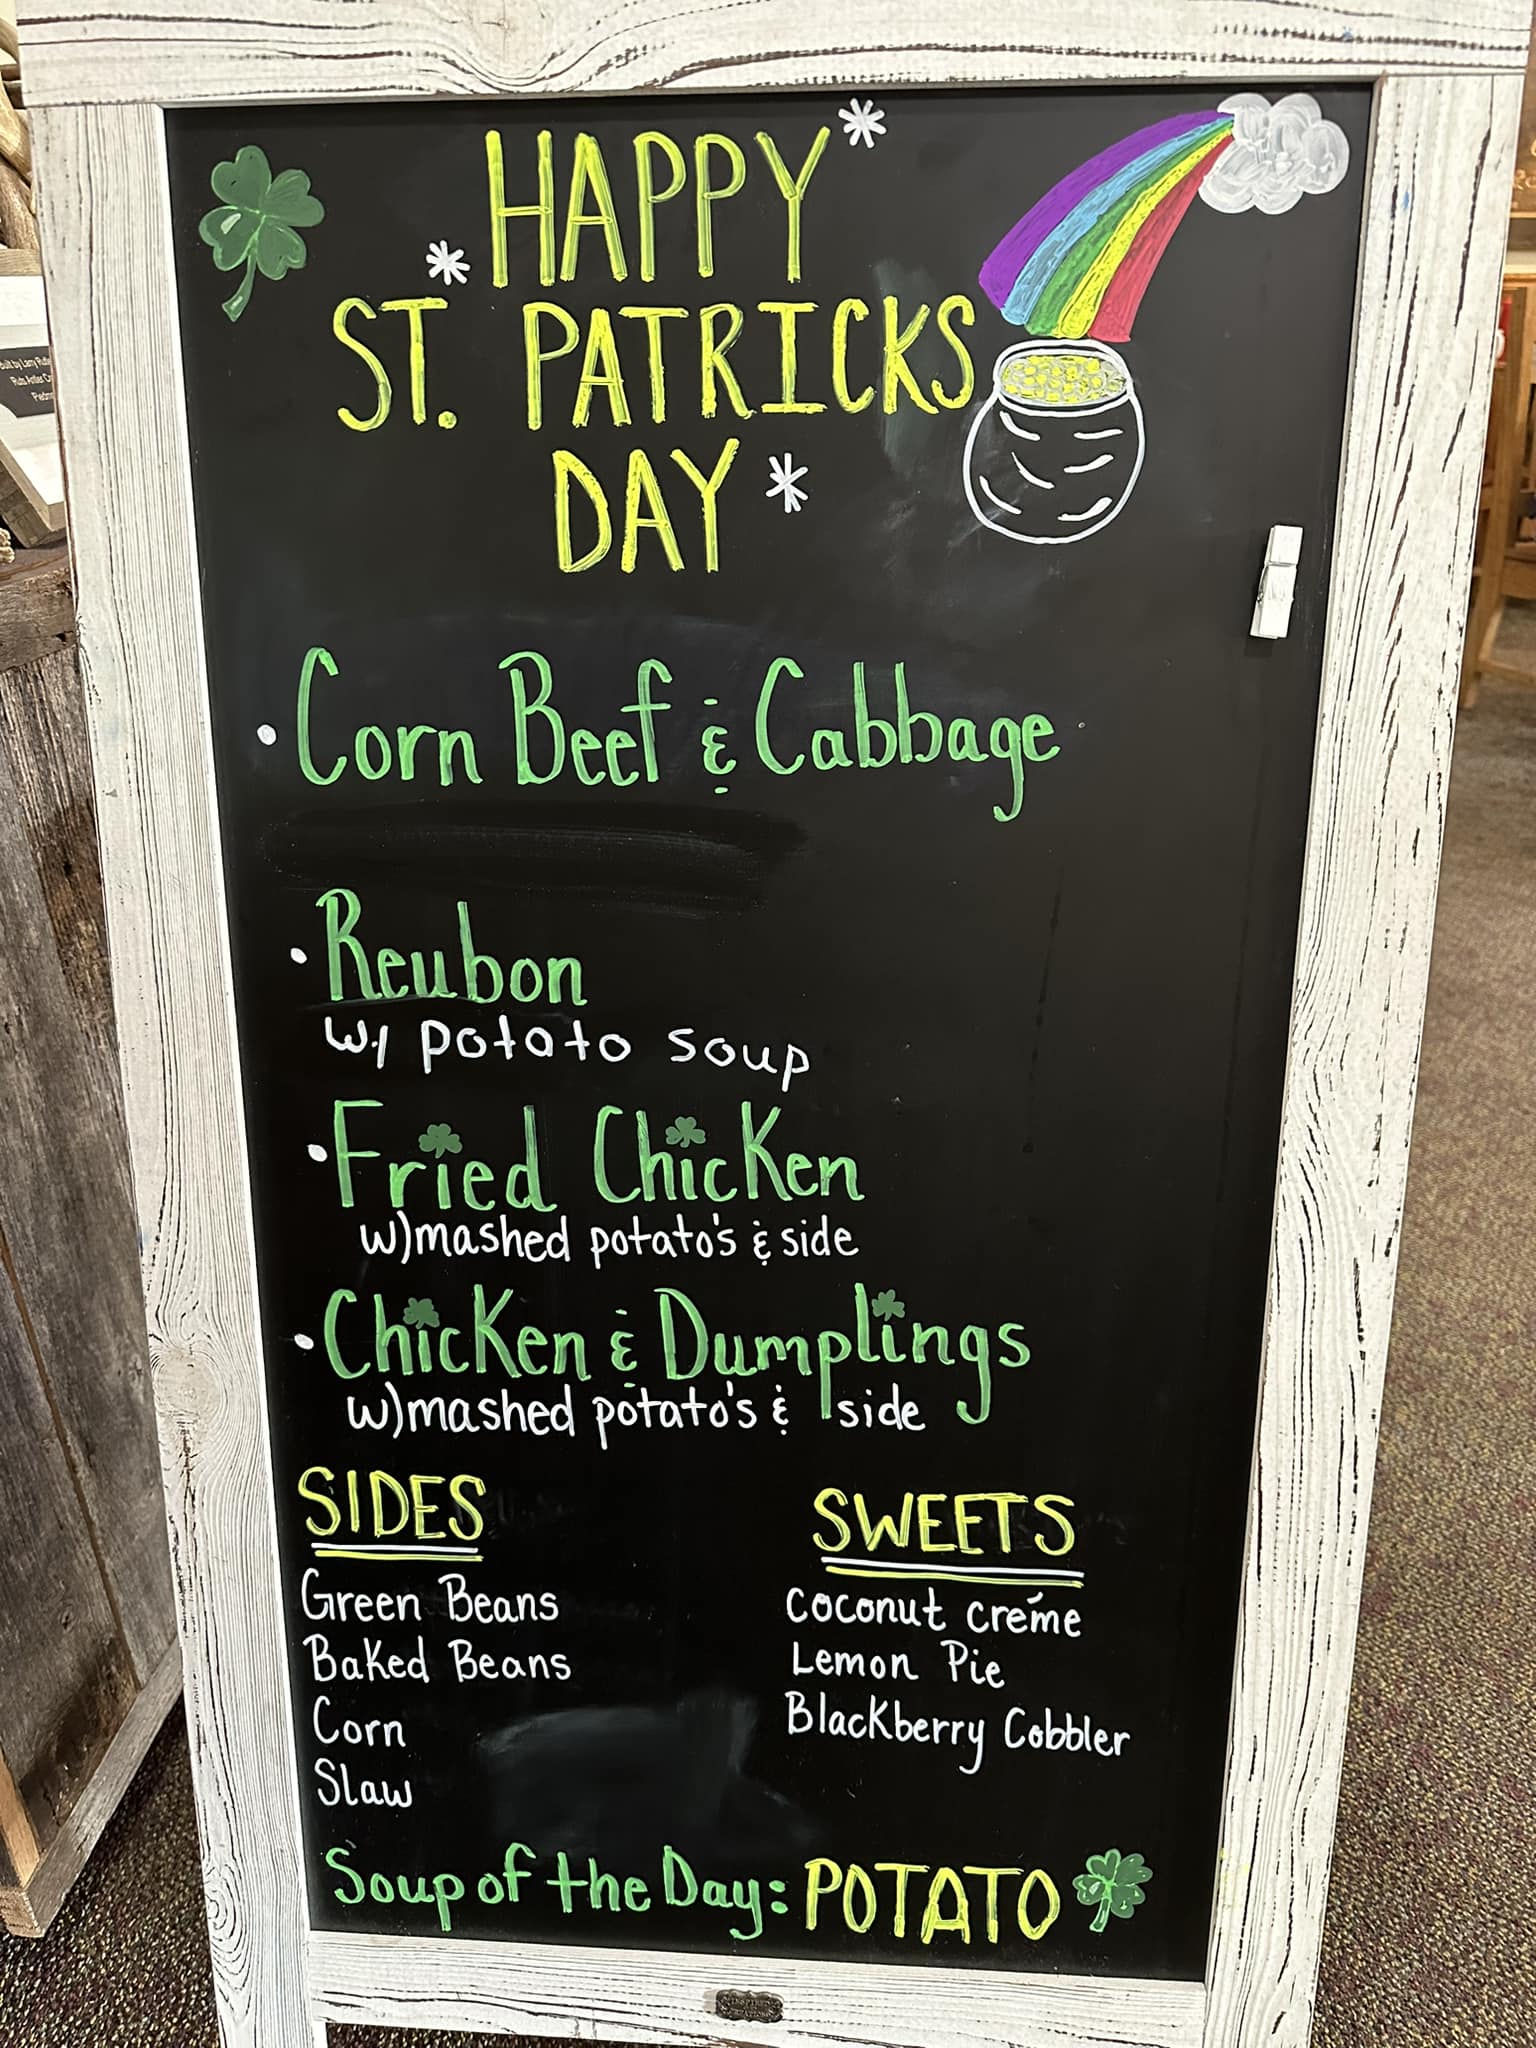 HAPPY
ST. PATRICKS
DAY
• Corn Beef & Cabbage
• Reubon
w/ potato soup
• Fried Chicken
w/mashed potato's & side
• Chicken & Dumplings
w/mashed potato's & side
SIDES
Green Beans
Baked Beans
Corn
Slaw
SWEETS
Coconut créme
Lemon Pie
Blackberry Cobbler
Soup of the Day: POTATO